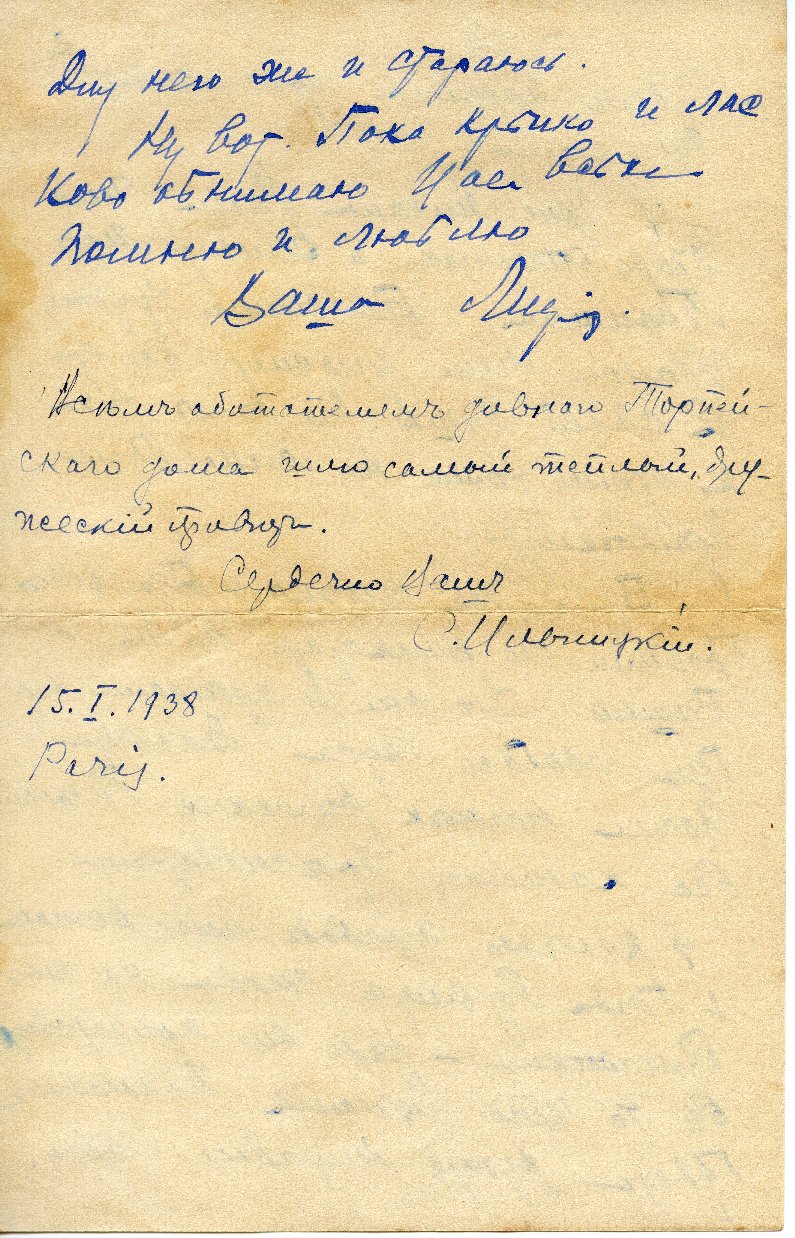 Для него же и стараюсь.
Ну вот. Пока крѣпко и лас
ково обнимаю Васъ всѣхъ
помню и люблю
Ваша Лида.
Всѣмъ обитателямъ
скаго дома шлю самый теплый, дру-
жескій привѣтъ.
Сердечно Вашъ
С. Ильницкій.
15.I.1938
Paris.